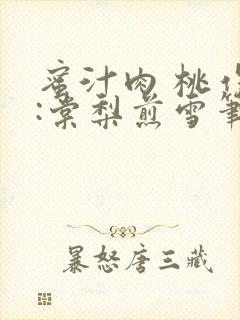 蜜汁肉桃作
:棠梨煎雪笔
暴怒唐三藏